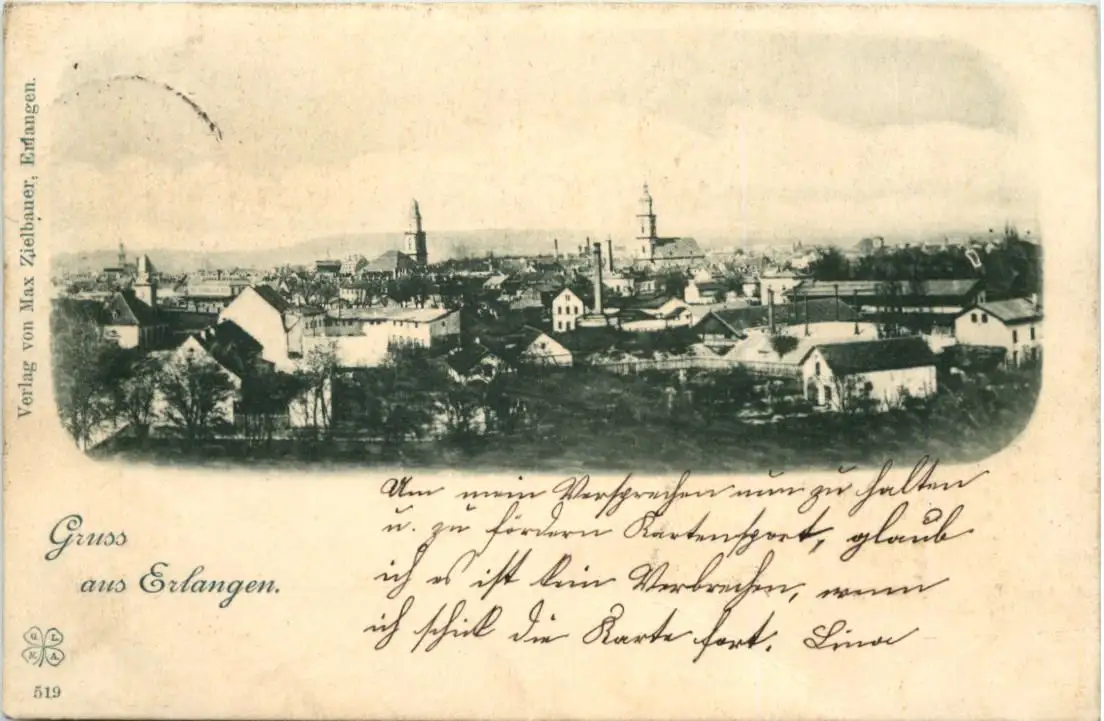 Verlag von Max Zielbauer, Erlangen.
Um mein Versprechen nun zu halten
u. zu fördern Kartensport, glaub
ich es ist kein Verbrechen, wenn
ich schick die Karte fort. Lina
Gruss
aus Erlangen.
C L
K A
519